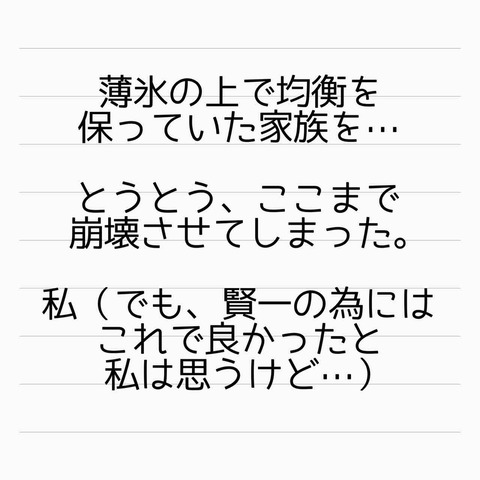 薄氷の上で均衡を
保っていた家族を…
とうとう、ここまで
崩壊させてしまった。
私（でも、賢一の為には
これで良かったと
私は思うけど…）